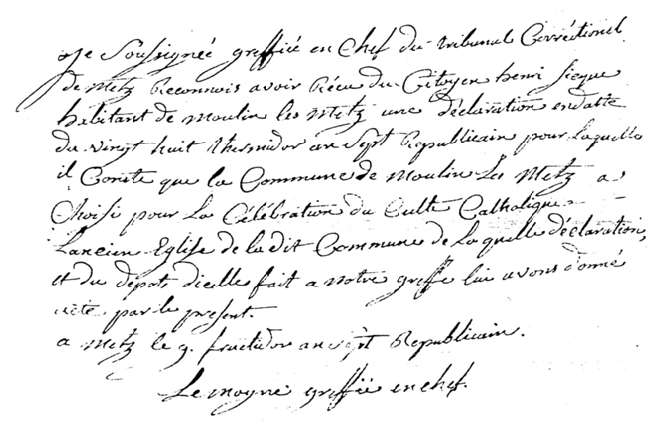 Je Soussignée greffié en Chef du tribunal Corréctionel
de Metz Reconnois avoir Récu du Citoyen henri
habitant de moulin les Metz une déclaration en datte
du vingt huit thermidor an Sept Republicain pour laquelle
il Conste que la Commune de moulin Les Metz a
Choisi pour La Célébration du Culte Catholique
Lancien Eglise de la dit Commune de Laquelle déclaration,
et du dépot dicelle fait a notre greffe lui avons donné
acte par le present.
a Metz le 9. fructidor an sept Republicain.
Lemoyne greffié en chef.